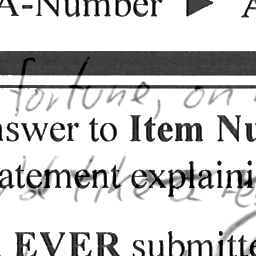 A-Number ▶ A
fortune, on
nswer to Item Nu
atement explaini
EVER submitte